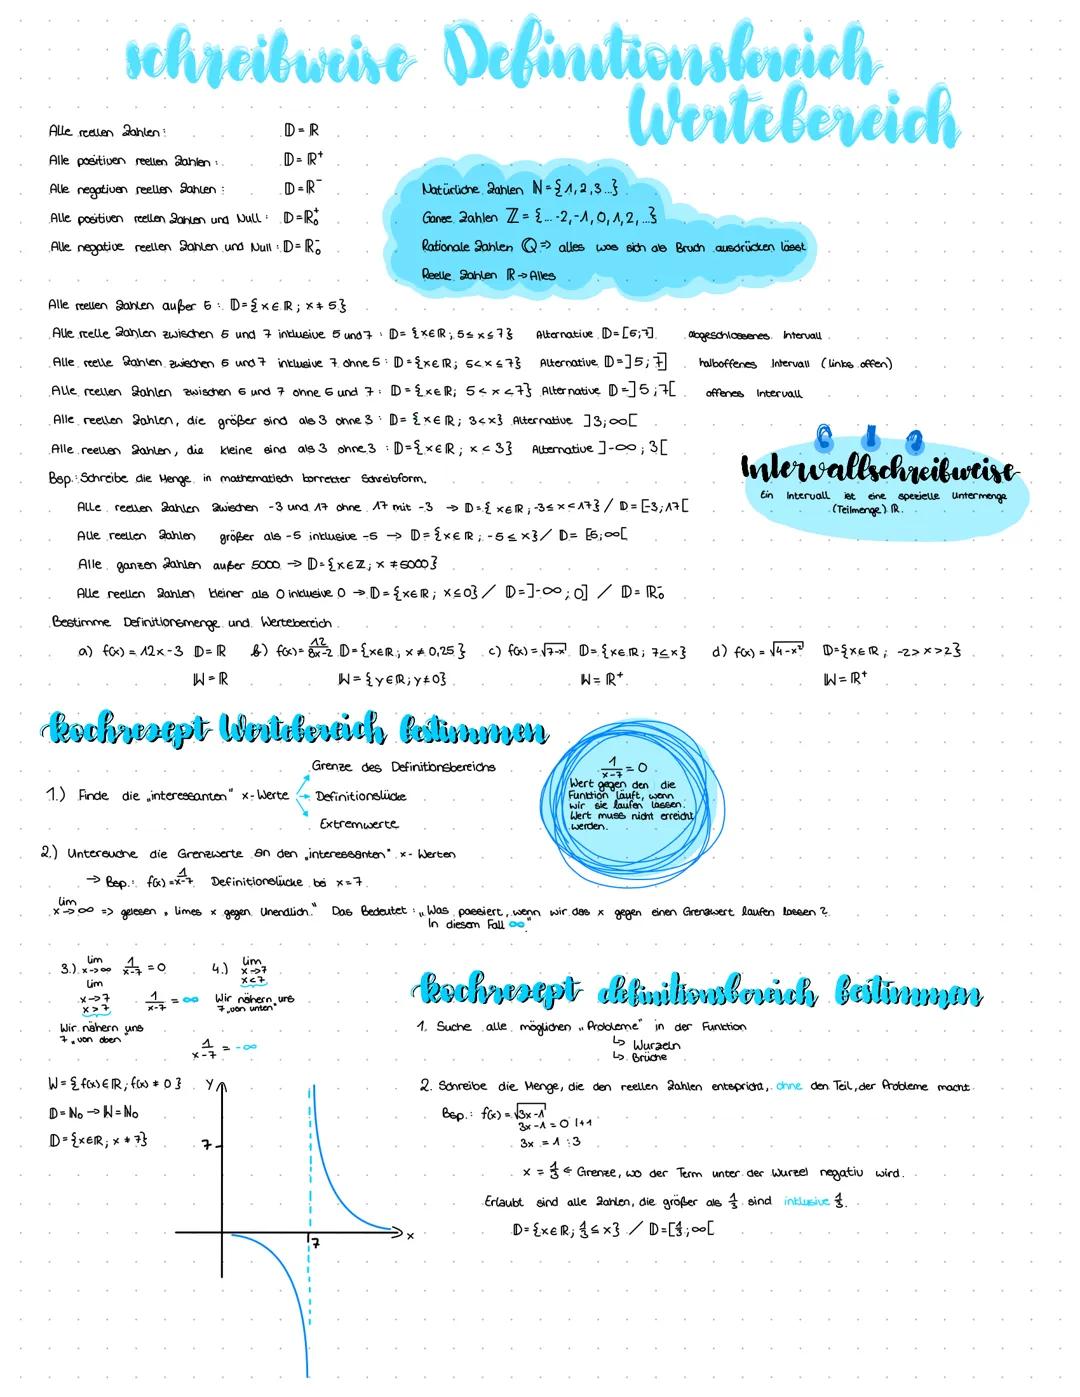 schreibweise Definitionsbereich
Wertebereich
Alle reellen Zahlen: 𝔻 = ℝ
Alle positiven reellen Zahlen: 𝔻 = ℝ⁺
Alle negativen reellen Zahlen: 𝔻 = ℝ⁻
Alle positiven reellen Zahlen und Null: 𝔻 = ℝ₀⁺
Alle negative reellen Zahlen und Null: 𝔻 = ℝ₀⁻
Natürliche Zahlen ℕ = {1,2,3...}
Ganze Zahlen ℤ = {...-2,-1,0,1,2,...}
Rationale Zahlen ℚ => alles was sich als Bruch ausdrücken lässt
Reelle Zahlen ℝ → Alles
Alle reellen Zahlen außer 5: 𝔻 = {x ∈ ℝ; x ≠ 5}
Alle reelle Zahlen zwischen 5 und 7 inklusive 5 und 7: 𝔻 = {x ∈ ℝ; 5 ≤ x ≤ 7} Alternative 𝔻 = [5;7] abgeschlossenes Intervall
Alle reelle Zahlen zwischen 5 und 7 inklusive 7 ohne 5: 𝔻 = {x ∈ ℝ; 5 < x ≤ 7} Alternative 𝔻 = ]5;7] halboffenes Intervall (links offen)
Alle reellen Zahlen zwischen 5 und 7 ohne 5 und 7: 𝔻 = {x ∈ ℝ; 5 < x < 7} Alternative 𝔻 = ]5;7[ offenes Intervall
Alle reellen Zahlen, die größer sind als 3 ohne 3: 𝔻 = {x ∈ ℝ; 3 < x} Alternative ]3;∞[
Alle reellen Zahlen, die kleine sind als 3 ohne 3: 𝔻 = {x ∈ ℝ; x < 3} Alternative ]-∞;3[
Intervallschreibweise
Ein Intervall ist eine spezielle Untermenge
(Teilmenge) ℝ.
Bsp.: Schreibe die Menge in mathematisch korrekter Schreibform.
Alle reellen Zahlen zwischen -3 und 17 ohne 17 mit -3 → 𝔻 = {x ∈ ℝ; -3 ≤ x < 17} / 𝔻 = [-3;17[
Alle reellen Zahlen größer als -5 inklusive -5 → 𝔻 = {x ∈ ℝ; -5 ≤ x} / 𝔻 = [5;∞[
Alle ganzen Zahlen außer 5000 → 𝔻 = {x ∈ ℤ; x ≠ 5000}
Alle reellen Zahlen kleiner als 0 inklusive 0 → 𝔻 = {x ∈ ℝ; x ≤ 0} / 𝔻 = ]-∞;0] / 𝔻 = ℝ₀⁻
Bestimme Definitionsmenge und Wertebereich
a) f(x) = 12x-3 𝔻 = ℝ b) f(x) = 12/(8x-2) 𝔻 = {x ∈ ℝ; x ≠ 0,25} c) f(x) = √(7-x) 𝔻 = {x ∈ ℝ; 7 ≤ x} d) f(x) = √(4-x²) 𝔻 = {x ∈ ℝ; -2 > x > 2}
𝕎 = ℝ 𝕎 = {y ∈ ℝ; y ≠ 0} 𝕎 = ℝ⁺ 𝕎 = ℝ⁺
kochrezept Wertebereich bestimmen
Grenze des Definitionsbereichs
1.) Finde die „interessanten" x-Werte → Definitionslücke
Extremwerte
1/(x-7) = 0
Wert gegen den die
Funktion läuft, wenn
wir sie laufen lassen.
Wert muss nicht erreicht
werden.
2.) Untersuche die Grenzwerte an den „interessanten" x-Werten
→ Bsp.: f(x) = 1/(x-7) Definitionslücke bei x=7
lim x→∞ => gelesen „limes x gegen Unendlich." Das Bedeutet: „Was passiert, wenn wir das x gegen einen Grenzwert laufen lassen?
In diesem Fall ∞"
3.) lim x→∞ 1/(x-7) = 0
lim x→7 x>7 1/(x-7) = ∞
Wir nähern uns
7 „von oben"
4.) lim x→7 x<7
Wir nähern uns
7 „von unten"
1/(x-7) = -∞
W = {f(x) ∈ ℝ; f(x) ≠ 0}
𝔻 = ℕ₀ → 𝕎 = ℕ₀
𝔻 = {x ∈ ℝ; x ≠ 7}
y
7
7
x
kochrezept definitionsbereich bestimmen
1. Suche alle möglichen „Probleme" in der Funktion
↳ Wurzeln
↳ Brüche
2. Schreibe die Menge, die den reellen Zahlen entspricht, ohne den Teil, der Probleme macht.
Bsp.: f(x) = √(3x-1)
3x-1 = 0 |+1
3x = 1 :3
x = 1/3 ← Grenze, wo der Term unter der Wurzel negativ wird.
Erlaubt sind alle Zahlen, die größer als 1/3 sind inklusive 1/3.
𝔻 = {x ∈ ℝ; 1/3 ≤ x} / 𝔻 = [1/3;∞[